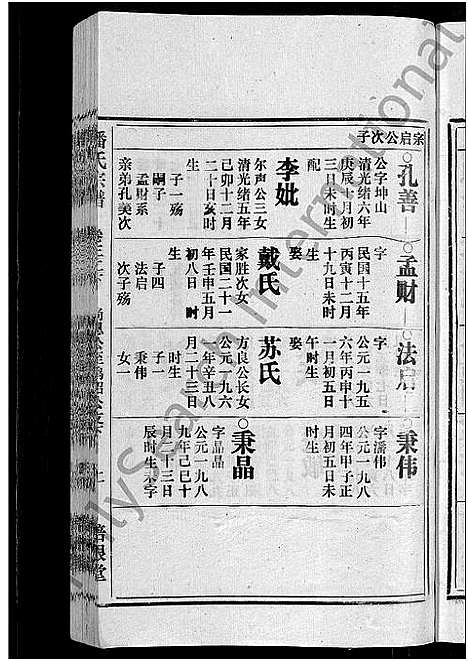 宗启公次子
○孔善
公字坤山
清光绪六年
庚辰十月初
三日未时生
配
李妣
尔声公三女
清光绪五年
己卯十二月
二十日亥时
生
子一殇
嗣子
孟财系
亲弟孔美次
○孟财
字
民国十五年
丙寅十二月
十九日未时
生
娶
戴氏
家胜次女
民国二十一
年壬申五月
初八日时
生
子四
法启
次子殇
○法启
字
公元一九五
六年丙申十
一月初五日
午时生
娶
苏氏
方良公长女
公元一九六
一年辛丑八
月二十三日
时生
子一
秉伟
女一
秉伟
字潘伟
公元一九八
四年甲子正
月初五日未
时生
○秉晶
字晶晶
公元一九八
九年己巳十
月二十三日
辰时生未字
潘氏宗谱
上
FamilySearch International